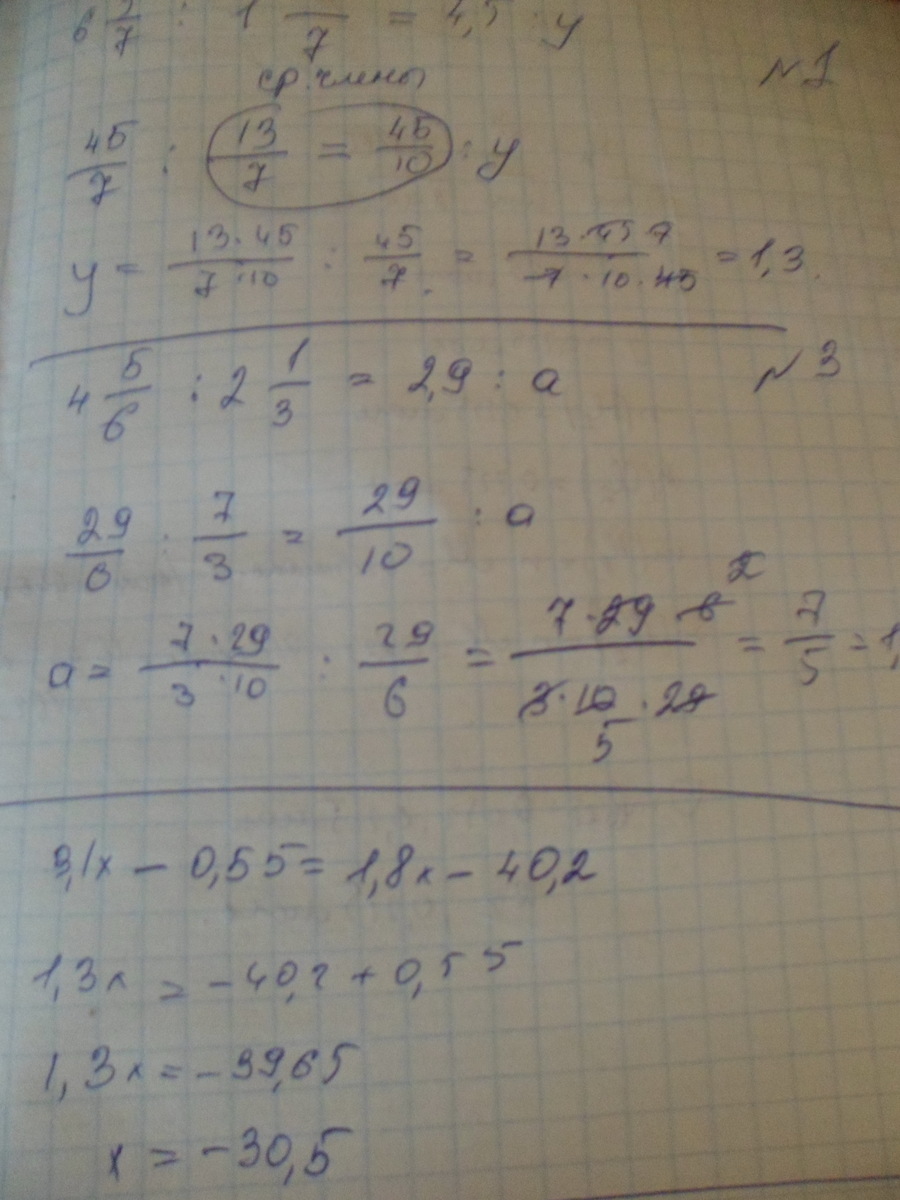 6 /7 : 1 /7 = 4,5 : y
ср. члены №1
45/7 : 13/7 = 45/10 : y
y = 13·45/7·10 : 45/7 = 13·45·7/7·10·45 = 1,3.
4 5/6 : 2 1/3 = 2,9 : a №3
29/6 : 7/3 = 29/10 : a
a = 7·29/3·10 : 29/6 = 7·29·6 2/3·10·29 5 = 7/5 = 1,
3,1x - 0,55 = 1,8x - 40,2
1,3x = -40,2 + 0,55
1,3x = -39,65
x = -30,5